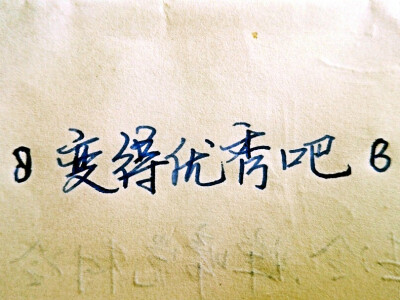 8 变得优秀吧 8